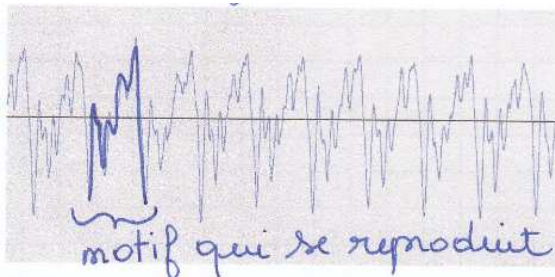 motif qui se reproduit